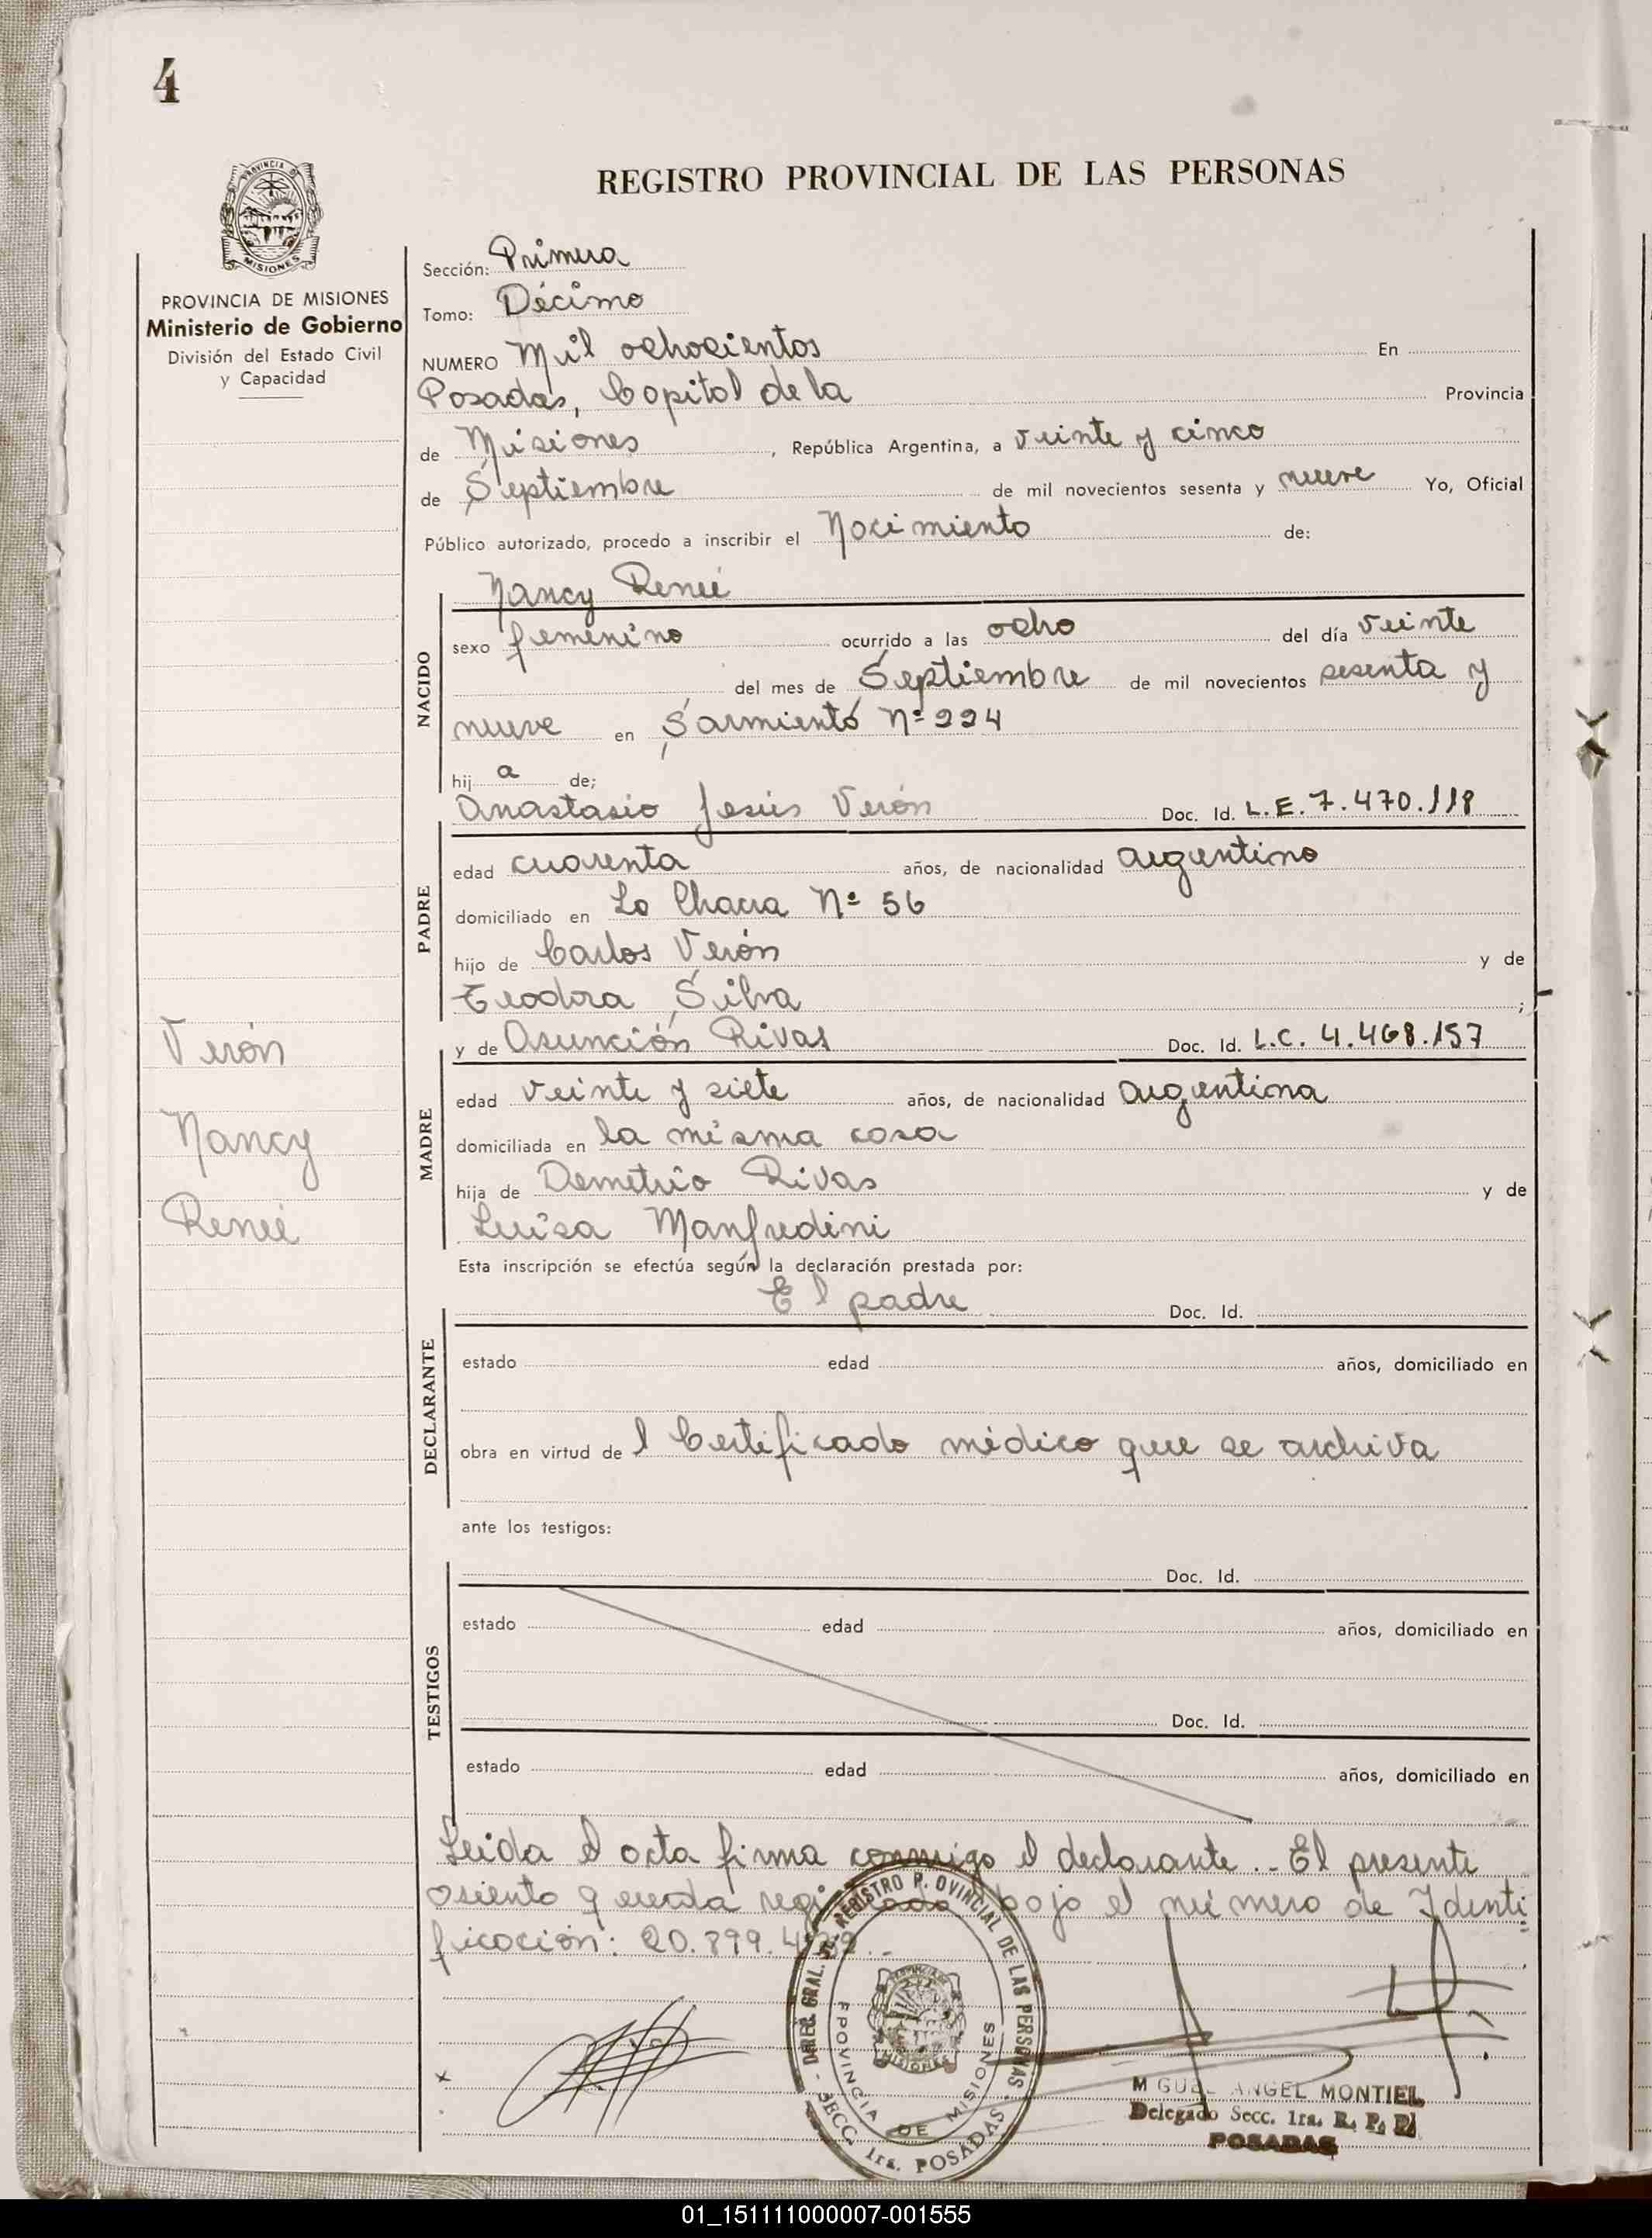 4
PROVINCIA DE MISIONES
Ministerio de Gobierno
División del Estado Civil
y Capacidad
REGISTRO PROVINCIAL DE LAS PERSONAS
Sección: Primera
Tomo: Décimo
NUMERO Mil ochocientos En
Posadas, Capital de la Provincia
de Misiones, República Argentina, a veinte y cinco
de Septiembre de mil novecientos sesenta y nueve Yo, Oficial
Público autorizado, procedo a inscribir el Nacimiento de:
NACIDO
Nancy Reneé
sexo femenino ocurrido a las ocho del día veinte
del mes de Septiembre de mil novecientos sesenta y
nueve en Sarmiento Nº 224
hij a de;
PADRE
Anastasio Jesús Verón Doc. Id. L.E. 7.470.118
edad cuarenta años, de nacionalidad argentino
domiciliado en La Chacra Nº 56
hijo de Carlos Verón y de
Teodora Silva;
MADRE
y de Asunción Rivas Doc. Id. L.C. 4.468.157
edad veinte y siete años, de nacionalidad argentina
domiciliada en la misma casa
hija de Demetrio Rivas y de
Luisa Manfredini
Verón
Nancy
Reneé
Esta inscripción se efectúa según la declaración prestada por:
DECLARANTE
El padre Doc. Id.
estado edad años, domiciliado en
obra en virtud de l Certificado médico que se archiva
ante los testigos:
TESTIGOS
Doc. Id.
estado edad años, domiciliado en
Doc. Id.
estado edad años, domiciliado en
Leida el acta firma conmigo el declarante.. El presente
asiento queda registrado bajo el número de Identi
ficación: 20.899.
DIREC. GRAL. REGISTRO PROVINCIAL DE LAS PERSONAS
PROVINCIA DE MISIONES
SECC. 1ra. POSADAS
MIGUEL ANGEL MONTIEL
Delegado Secc. 1ra. R. P. P.
POSADAS
01_151111000007-001555